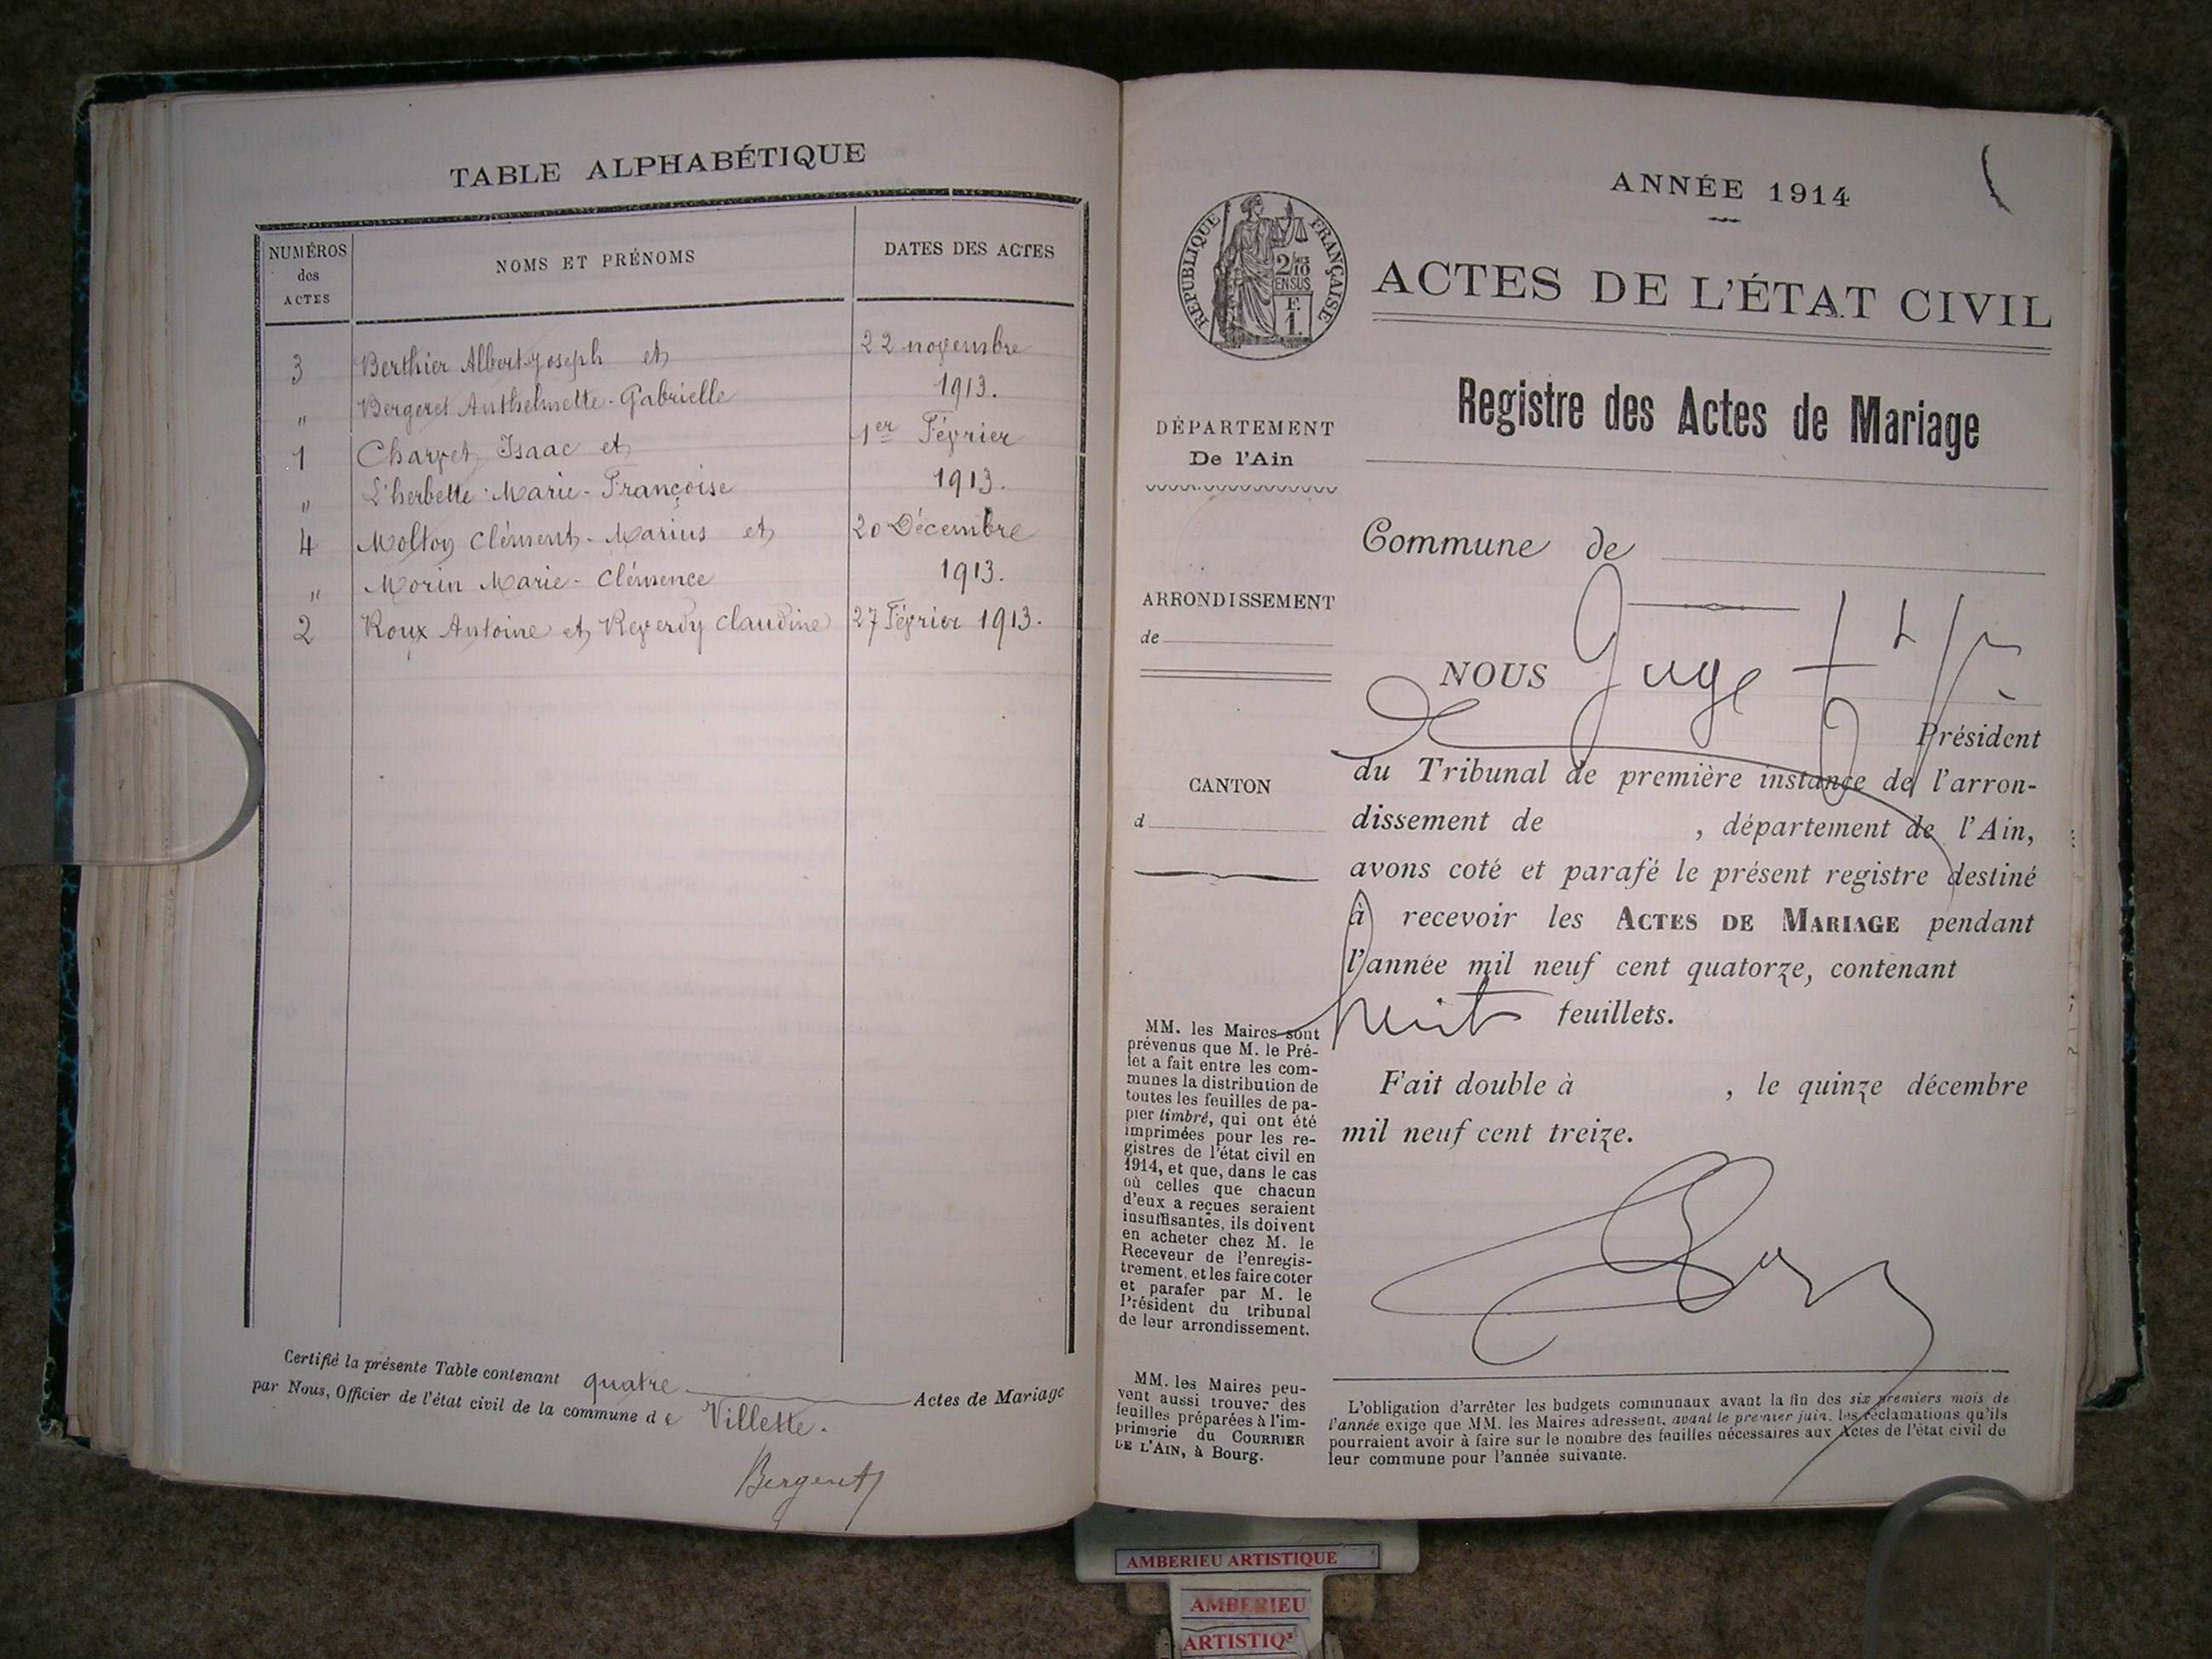 TABLE ALPHABÉTIQUE
NUMÉROS
des
ACTES
NOMS ET PRÉNOMS
DATES DES ACTES
3 Berthier Albert-Joseph et 22 novembre
„ Bergeret Anthelmette-Gabrielle 1913.
1 Charvet Isaac et 1er Février
„ L'herbette Marie-Françoise 1913.
4 Molloy Clément-Marius et 20 Décembre
„ Morin Marie-Clémence 1913.
2 Roux Antoine et Reverdy Claudine 27 Février 1913.
Certifié la présente Table contenant quatre Actes de Mariage
par Nous, Officier de l'état civil de la commune de Villette.
ANNÉE 1914
RÉPUBLIQUE FRANÇAISE
2/10
EN SUS
F.
1.
ACTES DE L'ÉTAT CIVIL
Registre des Actes de Mariage
DÉPARTEMENT
De l'Ain
ARRONDISSEMENT
de
CANTON
d
MM. les Maires sont
prévenus que M. le Pré-
fet a fait entre les com-
munes la distribution de
toutes les feuilles de pa-
pier timbré, qui ont été
imprimées pour les re-
gistres de l'état civil en
1914, et que, dans le cas
où celles que chacun
d'eux a reçues seraient
insuffisantes, ils doivent
en acheter chez M. le
Receveur de l'enregis-
trement, et les faire coter
et parafer par M. le
Président du tribunal
de leur arrondissement.
MM. les Maires peu-
vent aussi trouver des
feuilles préparées à l'im-
primerie du COURRIER
DE L'AIN, à Bourg.
Commune de
NOUS Juge
Président
du Tribunal de première instance de l'arron-
dissement de , département de l'Ain,
avons coté et parafé le présent registre destiné
à recevoir les ACTES DE MARIAGE pendant
l'année mil neuf cent quatorze, contenant
huit feuillets.
Fait double à , le quinze décembre
mil neuf cent treize.
L'obligation d'arrêter les budgets communaux avant la fin des six premiers mois de
l'année exige que MM. les Maires adressent, avant le premier juin, les réclamations qu'ils
pourraient avoir à faire sur le nombre des feuilles nécessaires aux Actes de l'état civil de
leur commune pour l'année suivante.
AMBERIEU ARTISTIQUE
AMBERIEU
ARTISTIQ